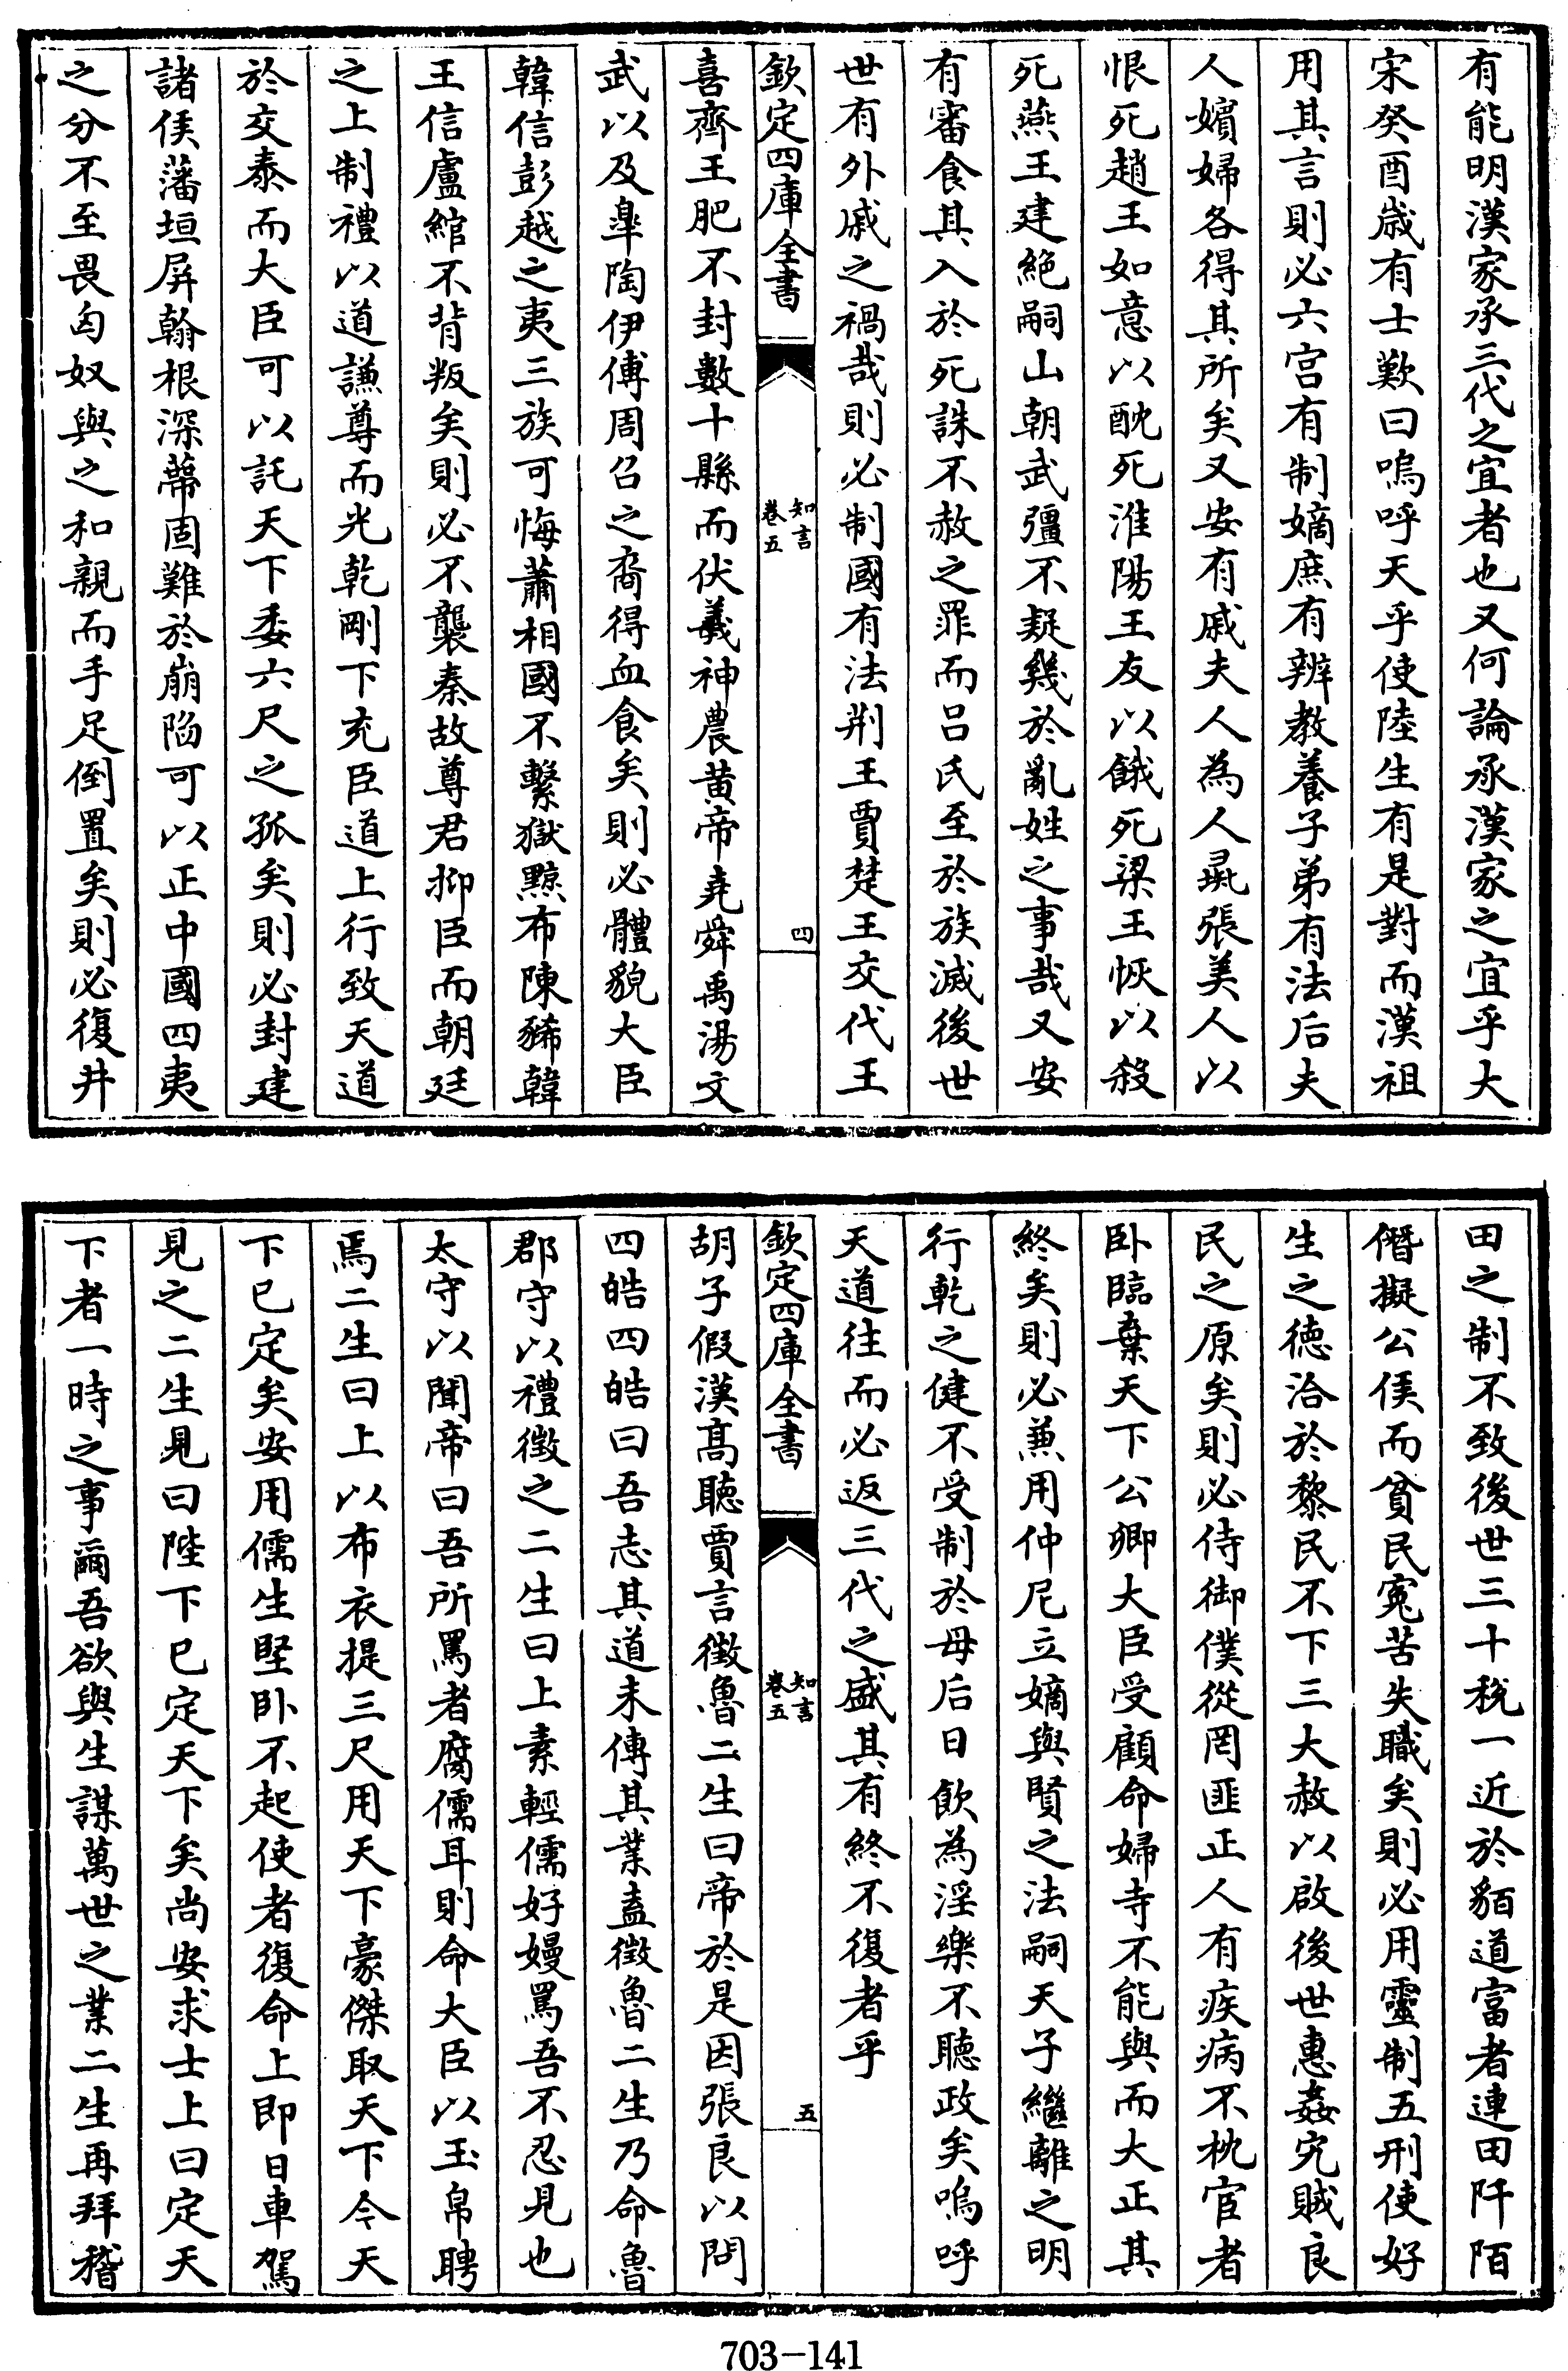 有能明漢家承三代之宜者也又何論承漢家之宜乎大
宋癸酉歲有士歎曰嗚呼天乎使陸生有是對而漢祖
用其言則必六宫有制嫡庶有辨教養子弟有法后夫
人嬪婦各得其所矣又安有戚夫人為人彘張美人以
恨死趙王如意以酖死淮陽王友以餓死梁王恢以殺
死燕王建絶嗣山朝武彊不疑幾於亂姓之事哉又安
有審食其入於死誅不赦之罪而吕氏至於族滅後世
世有外戚之禍哉則必制國有法荆王賈楚王交代王
欽定四庫全書
知言
卷五
四
喜齊王肥不封數十縣而伏羲神農黄帝堯舜禹湯文
武以及臯陶伊傅周召之裔得血食矣則必體貌大臣
韓信彭越之夷三族可悔蕭相國不繫獄黥布陳豨韓
王信盧綰不背叛矣則必不襲秦故尊君抑臣而朝廷
之上制禮以道謙尊而光乾剛下充臣道上行致天道
於交泰而大臣可以託天下委六尺之孤矣則必封建
諸侯藩垣屏翰根深蔕固難於崩陷可以正中國四夷
之分不至畏匈奴與之和親而手足倒置矣則必復井
田之制不致後世三十税一近於貊道富者連田阡陌
僭擬公侯而貧民寃苦失職矣則必用靈制五刑使好
生之徳洽於黎民不下三大赦以啟後世惠姦宄賊良
民之原矣則必侍御僕從罔匪正人有疾病不枕宦者
卧臨棄天下公卿大臣受顧命婦寺不能與而大正其
終矣則必兼用仲尼立嫡與賢之法嗣天子繼離之明
行乾之健不受制於母后日飲為淫樂不聽政矣嗚呼
天道往而必返三代之盛其有終不復者乎
欽定四庫全書
知言
卷五
五
胡子假漢髙聽賈言徵魯二生曰帝於是因張良以問
四皓四皓曰吾志其道未傳其業盍徵魯二生乃命魯
郡守以禮徵之二生曰上素輕儒好嫚罵吾不忍見也
太守以聞帝曰吾所罵者腐儒耳則命大臣以玉帛聘
焉二生曰上以布衣提三尺用天下豪傑取天下今天
下已定矣安用儒生堅卧不起使者復命上即日車駕
見之二生見曰陛下已定天下矣尚安求士上曰定天
下者一時之事爾吾欲與生謀萬世之業二生再拜稽
703-141